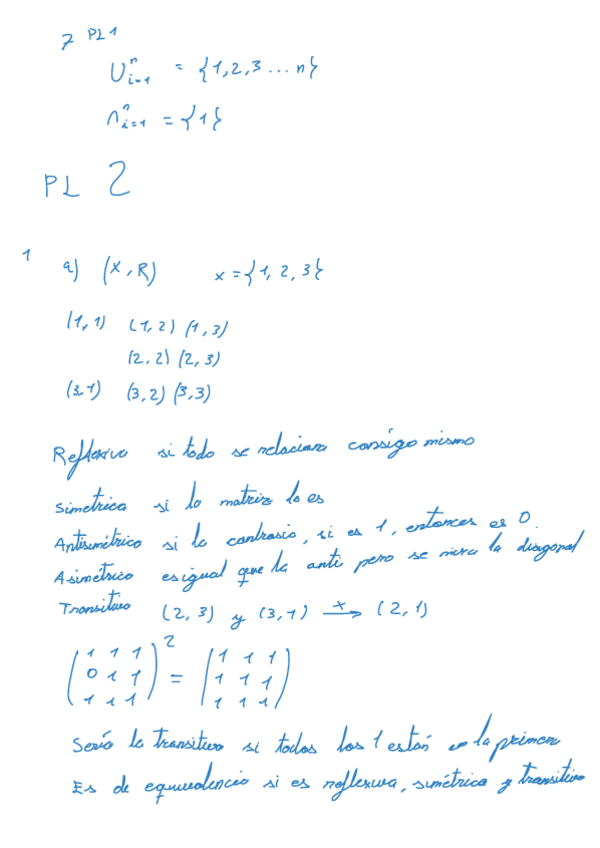 7 PL1
∪ⁿᵢ₌₁ = {1,2,3 ... n}
∩ⁿᵢ₌₁ = {1}
PL 2
1 a) (X,R) x = {1, 2, 3}
(1,1) (1,2) (1,3)
(2,2) (2,3)
(3,1) (3,2) (3,3)
Reflexivo si todo se relaciona consigo mismo
Simétrica si la matriz lo es
Antisimétrico si lo contrario, si es 1, entonces es 0.
Asimétrico es igual que la anti pero se mira la diagonal
Transitivo (2,3) y (3,1) —x→ (2,1)
(1 1 1)² (1 1 1)
(0 1 1) = (1 1 1)
(1 1 1) (1 1 1)
Sería la transitiva si todos los 1 están en la primera
Es de equivalencia si es reflexiva, simétrica y transitiva